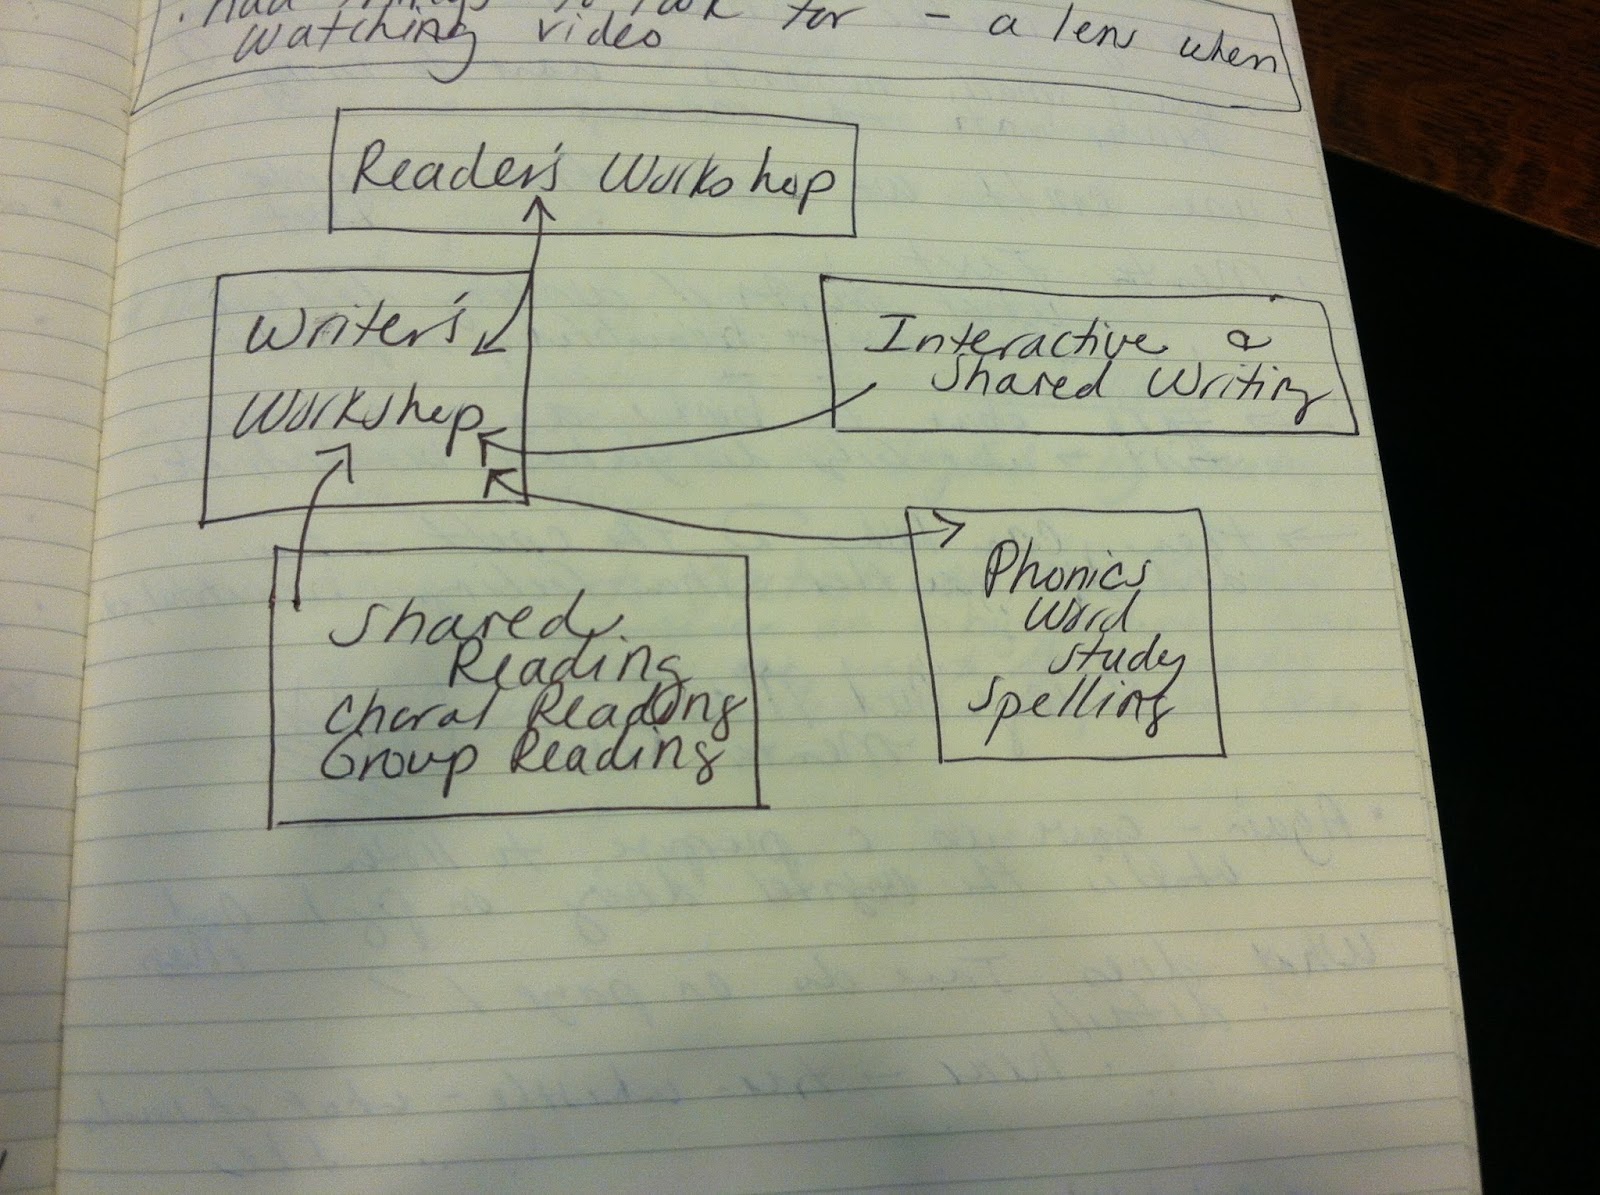 . Had things to look for - a lens when
watching video
Reader's Workshop
Writer's
Workshop
Interactive &
Shared Writing
Shared
Reading
Choral Reading
Group Reading
Phonics
Word
Study
Spelling